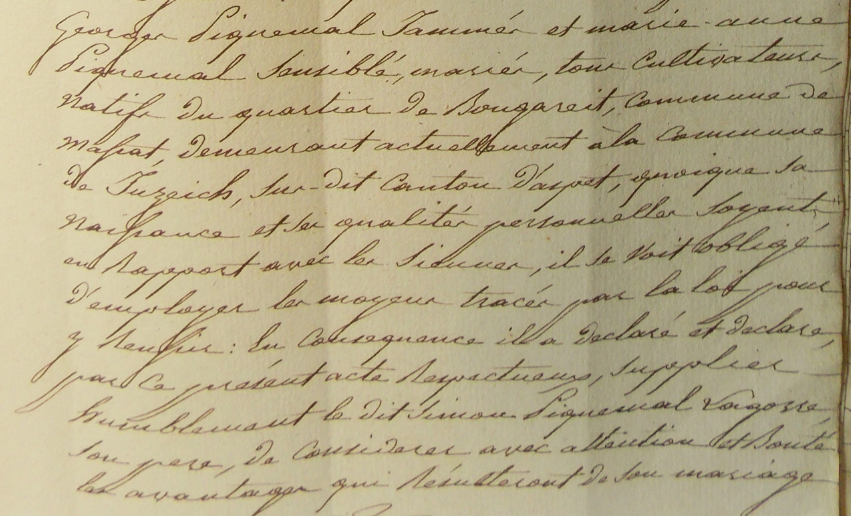 Georges Piquemal Tammés et marie-anne
Piquemal Sensiblé, mariés, tous Cultivateurs,
natifs du quartier de Bougareit, Commune de
Massat, demeurant actuellement à la Commune
De Juzeich, sur-dit Canton D'aspet, quoique sa
naissance et ses qualités personnelles soyent
en Rapport avec les siennes, il se voit obligé
D'employer les moyens tracés par la loi pour
y Reussir: En Consequence il a declaré et declare,
par Ce présent acte Respectueux, supplier
humblement le dit Simon Piquemal Vagossé,
son pere, de Considerer avec attention et Bonté
les avantages qui Résulteront de son mariage